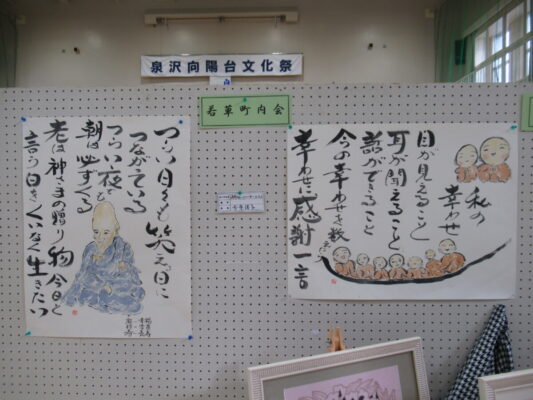 泉沢向陽台文化祭
若草町内会
つらい日々も笑える日に
つながている
つらい夜も
朝は必ずくる
老は神さまの贈り物今日と
言う日をくいなく生きたい
私の
幸わせ
目が見えること
耳が聞えること
話ができること
今の幸わせを数
幸わせに感謝一言